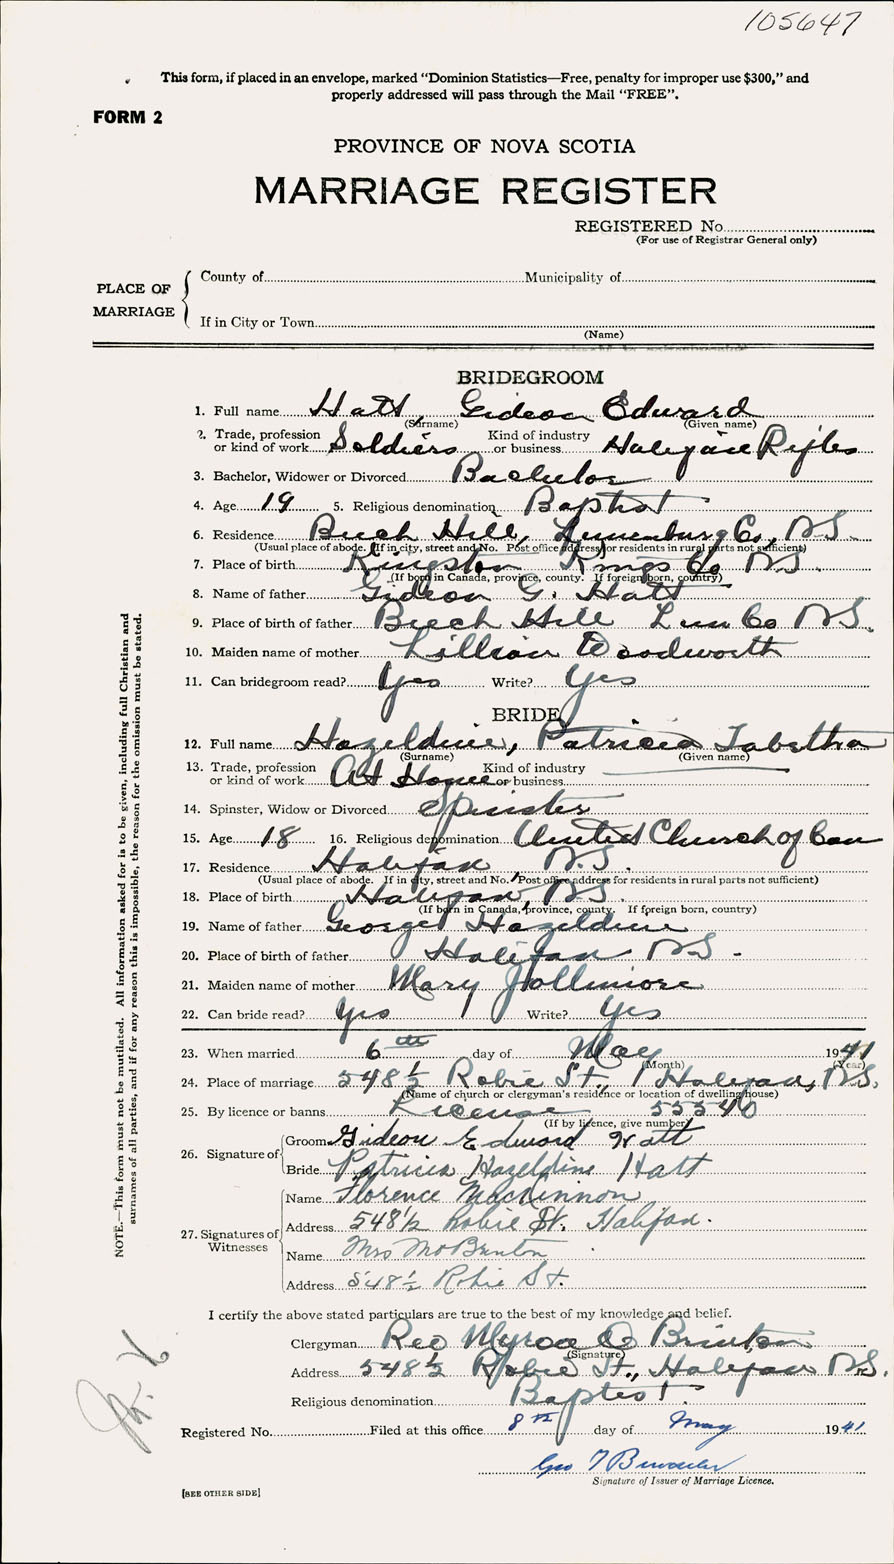 105647
This form, if placed in an envelope, marked “Dominion Statistics—Free, penalty for improper use $300,” and
properly addressed will pass through the Mail “FREE”.
FORM 2
PROVINCE OF NOVA SCOTIA
MARRIAGE REGISTER
REGISTERED No.
(For use of Registrar General only)
PLACE OF MARRIAGE
County of Municipality of
If in City or Town
(Name)
BRIDEGROOM
1. Full name Hatt, Gideon Edward
(Surname) (Given name)
2. Trade, profession or kind of work Soldiers Kind of industry or business Halifax Rifles
3. Bachelor, Widower or Divorced Bachelor
4. Age 19 5. Religious denomination Baptist
6. Residence Beech Hill, Lunenburg Co., N.S.
(Usual place of abode. If in city, street and No. Post office address for residents in rural parts not sufficient)
7. Place of birth Kingston Kings Co N.S.
(If born in Canada, province, county. If foreign born, country)
8. Name of father Gideon G. Hatt
9. Place of birth of father Beech Hill Lun Co N.S.
10. Maiden name of mother Lillian Woodworth
11. Can bridegroom read? Yes Write? Yes
BRIDE
12. Full name Hazeldine, Patricia Tabetha
(Surname) (Given name)
13. Trade, profession or kind of work At Home Kind of industry or business
14. Spinster, Widow or Divorced Spinster
15. Age 18 16. Religious denomination United Church of Can
17. Residence Halifax, N.S.
(Usual place of abode. If in city, street and No. Post office address for residents in rural parts not sufficient)
18. Place of birth Halifax, N.S.
(If born in Canada, province, county. If foreign born, country)
19. Name of father George Hazeldine
20. Place of birth of father Halifax N.S.
21. Maiden name of mother Mary Jollimore
22. Can bride read? Yes Write? Yes
23. When married 6th day of May 1941
(Month) (Year)
24. Place of marriage 548½ Robie St., Halifax, N.S.
(Name of church or clergyman's residence or location of dwelling house)
25. By licence or banns License 55540
(If by licence, give number)
26. Signature of
Groom Gideon Edward Hatt
Bride Patricia Hazeldine Hatt
27. Signatures of Witnesses
Name Florence MacKinnon
Address 548½ Robie St. Halifax.
Name Mrs M O Brinton
Address 548½ Robie St.
I certify the above stated particulars are true to the best of my knowledge and belief.
Clergyman Rev Myron O Brinton
(Signature)
Address 548½ Robie St., Halifax N.S.
Religious denomination Baptist
Registered No. Filed at this office 8th day of May 1941
Geo T
Signature of Issuer of Marriage Licence.
[SEE OTHER SIDE]
NOTE.—This form must not be mutilated. All information asked for is to be given, including full Christian and
surnames of all parties, and if for any reason this is impossible, the reason for the omission must be stated.